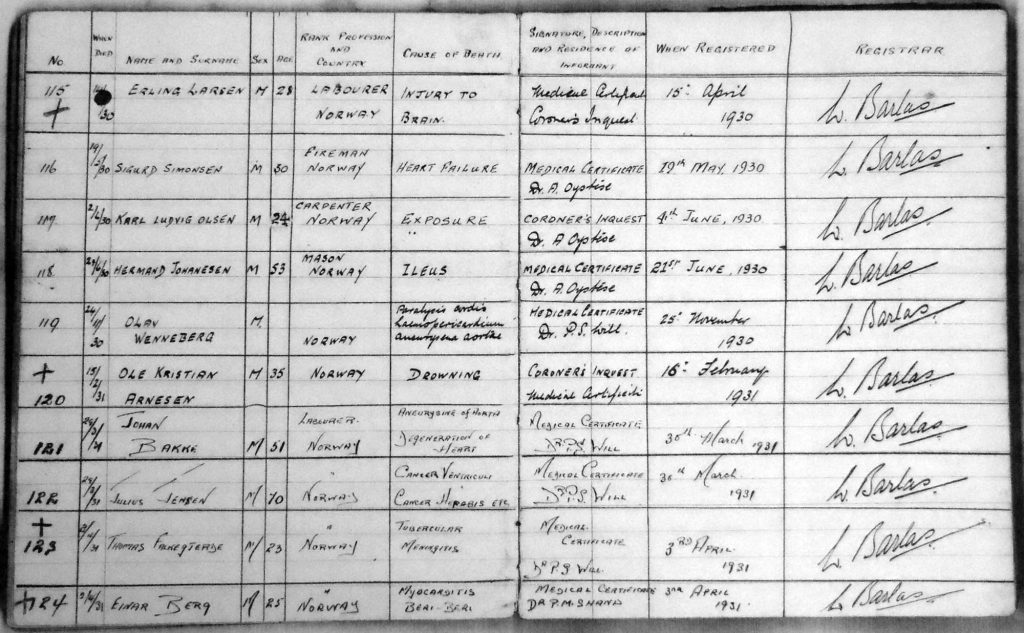 No. WHEN DIED NAME AND SURNAME SEX AGE RANK PROFESSION AND COUNTRY CAUSE OF DEATH SIGNATURE, DESCRIPTION AND RESIDENCE OF INFORMANT WHEN REGISTERED REGISTRAR
115 ERLING LARSEN M 28 LABOURER INJURY TO Medical 15th April
/30 NORWAY BRAIN. Coroner's Inquest 1930 W. Barlas
FIREMAN
116 19/5/30 SIGURD SIMONSEN M 30 NORWAY HEART FAILURE MEDICAL CERTIFICATE 19th MAY, 1930 W. Barlas
Dr. A.
CARPENTER
117 2/6/30 KARL LUDVIG OLSEN M 24 NORWAY EXPOSURE CORONER'S INQUEST 4th JUNE, 1930 W. Barlas
Dr. A
MASON
118 HERMAND JOHANESEN M 53 NORWAY ILEUS MEDICAL CERTIFICATE 21ST JUNE, 1930 W. Barlas
Dr. A.
Paralysis cordis
119 24/11/30 OLAV M. haemopericardium MEDICAL CERTIFICATE 25th November W. Barlas
WENNEBERG NORWAY aneurysma aortae Dr. P.S. Will. 1930
+ 15/2/31 OLE KRISTIAN M 35 NORWAY DROWNING CORONER'S INQUEST 16th February W. Barlas
120 ARNESEN Medical 1931
JOHAN LABOURER. ANEURYSING OF AORTA MEDICAL CERTIFICATE
121 29/3/31 BAKKE M 51 NORWAY DEGENERATION OF HEART WILL 30th March 1931 W. Barlas
" CANCER VENTRICULI MEDICAL CERTIFICATE 30th March
122 29/3/31 JULIUS JENSEN M 70 NORWAY CANCER HEPABIS ETC. Dr P.S. WILL 1931 W. Barlas
+ " TUBERCULAR MEDICAL
123 2/4/31 THOMAS M 23 NORWAY MENINGITIS CERTIFICATE 3RD APRIL W. Barlas
Dr P.S WILL. 1931
" MYOCARDITIS MEDICAL CERTIFICATE 3RD APRIL
+124 3/4/31 EINAR BERG M 25 NORWAY BERI-BERI DR P.M. SHAND 1931. W. Barlas